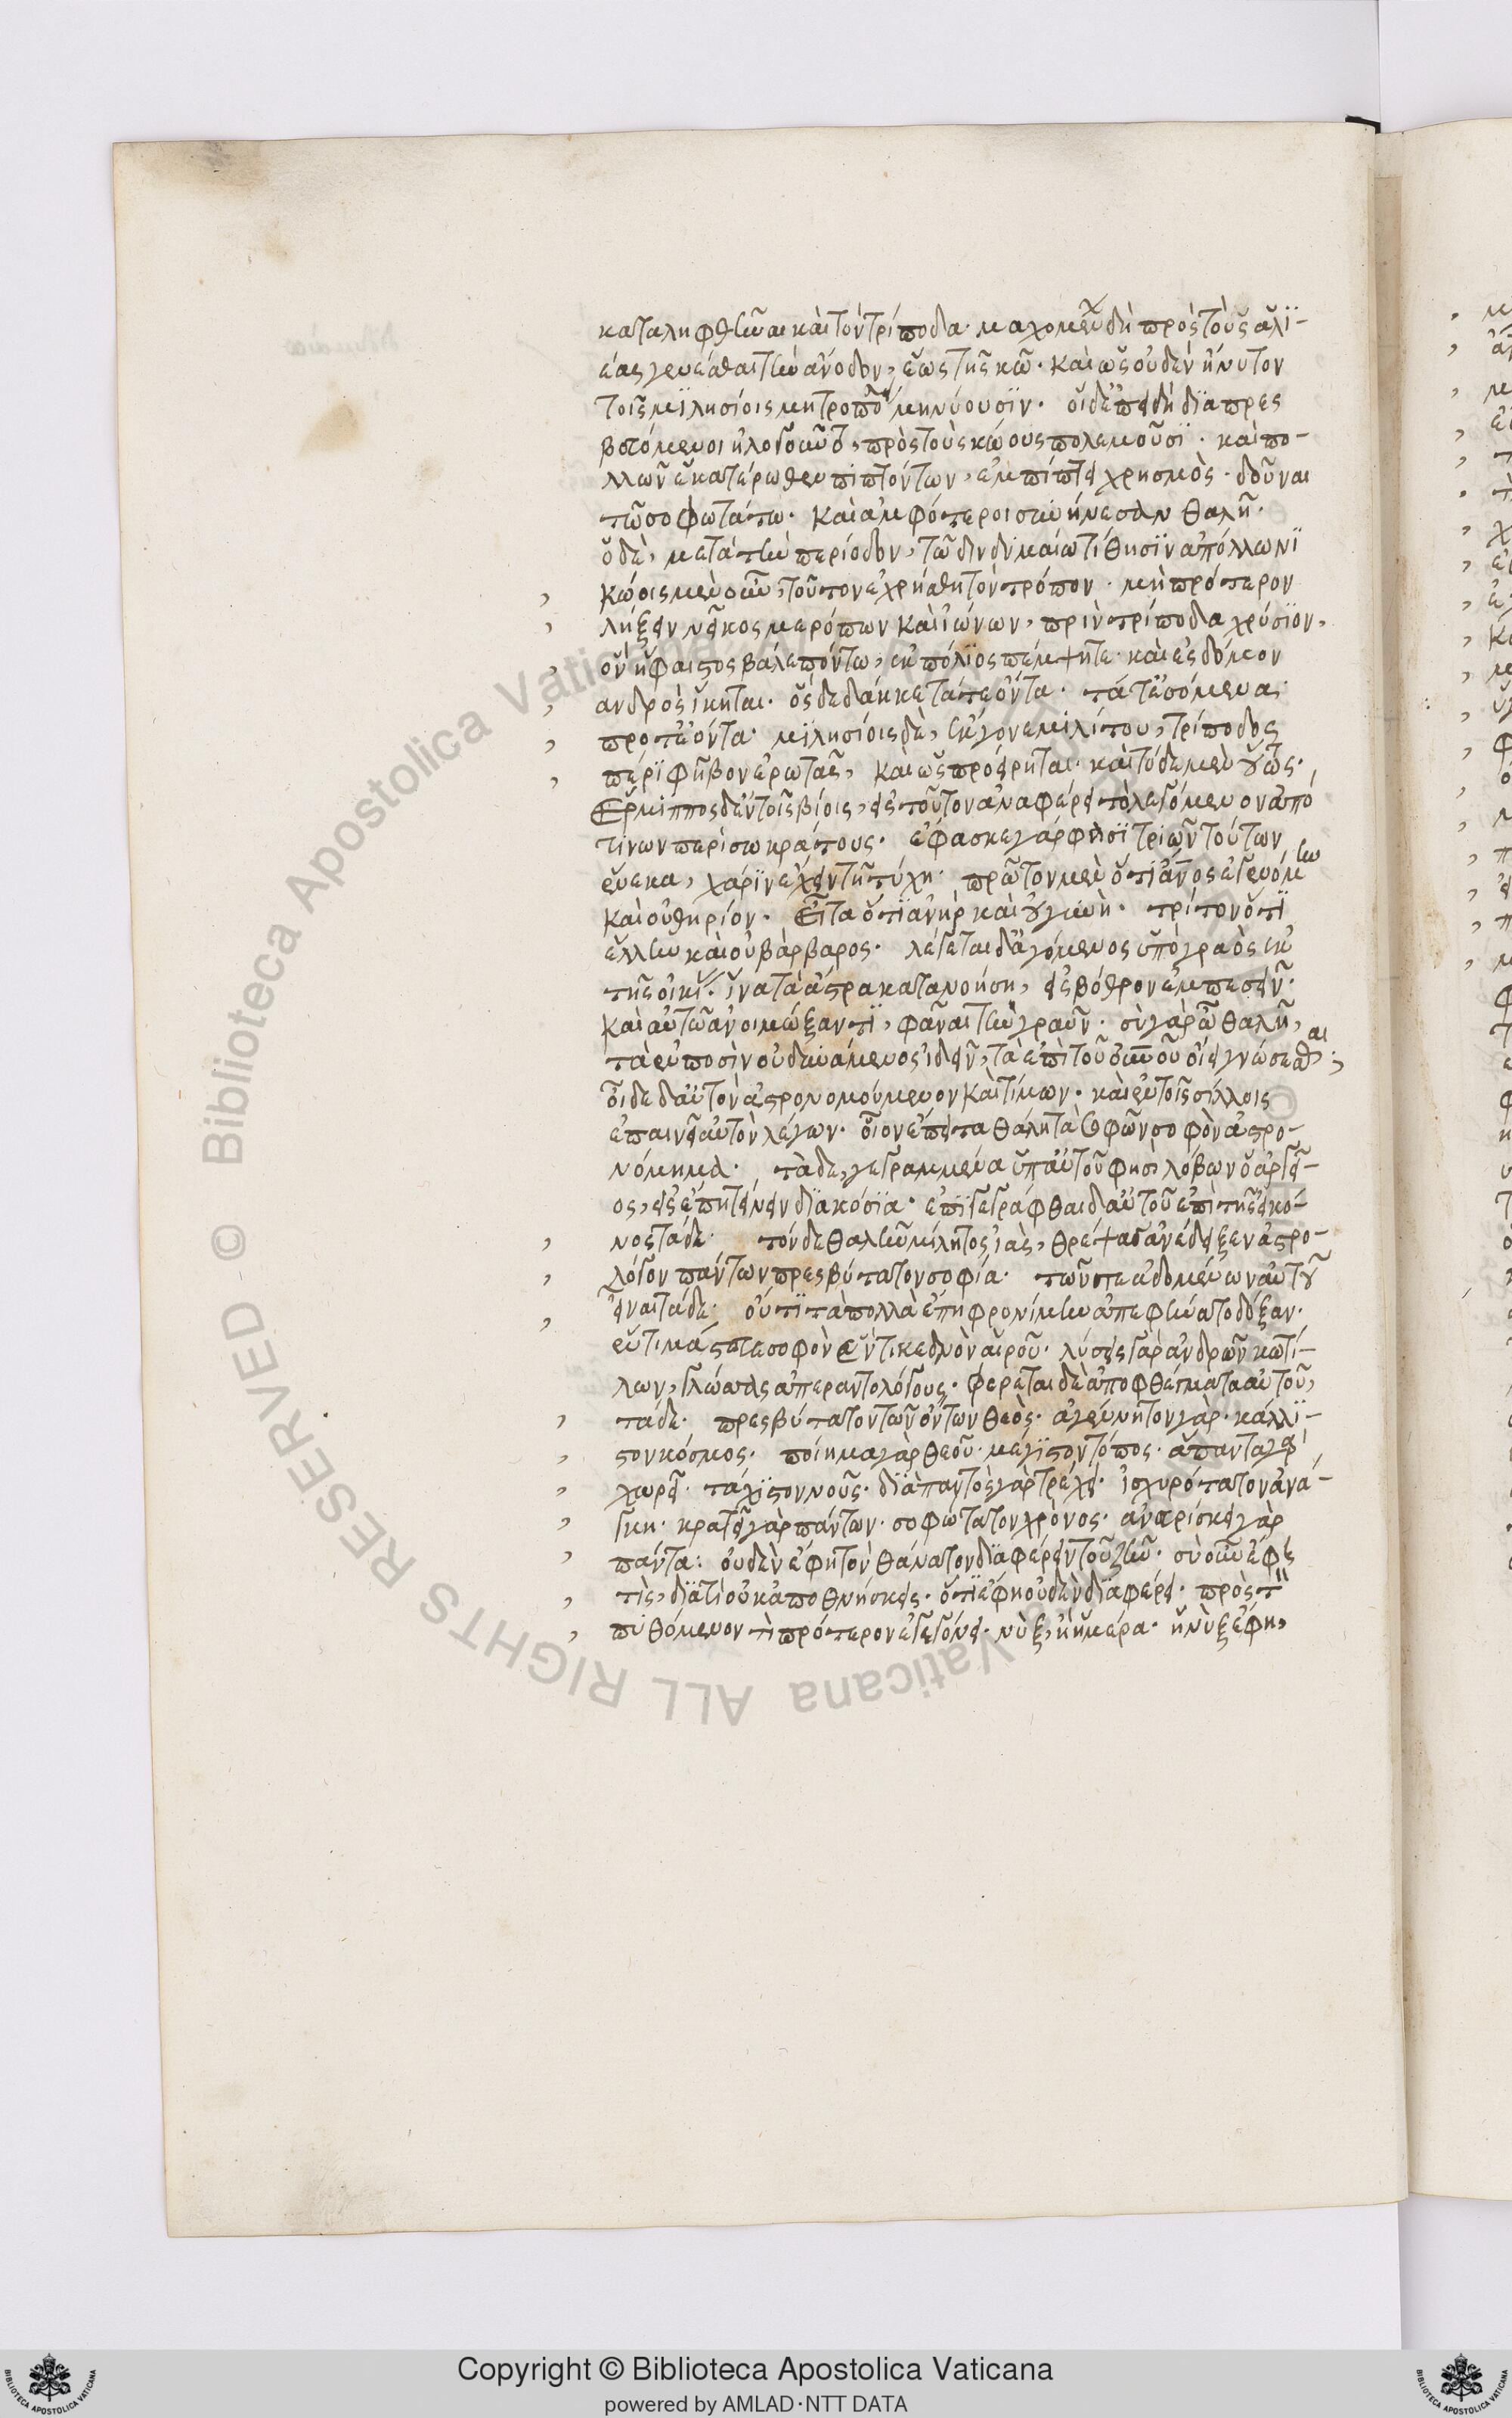 καταληφθῆναι καὶ τὸν τρίποδα· μαχομένων δὴ πρὸς τοὺς ἁλϊ-
έας γενέσθαι τὴν ἄνοδον, ἕως τῆς κῶ· καὶ ὡς οὐδὲν ἤνυτον
τοῖς μϊλησίοις μητροπόλει μηνύουσϊν· οἱ δ' ἐπειδὴ δϊαπρες
βευόμενοι ἠλογοῦντο, πρὸς τοὺς κώους πολεμοῦσϊ· καὶ πο-
λλῶν ἑκατέρωθεν πιπτόντων, ἐμπίπτει χρησμὸς· δοῦναι
τῶ σοφωτάτω· καὶ ἀμφότεροι συνήνεσαν θαλῆ·
ὁ δὲ, μετὰ τὴν περίοδον, τῶ δινδυμαίω τίθησϊν ἀπόλλωνϊ
κώοις μὲν οὖν, τοῦτον ἐχρήσθη τὸν τρόπον· μὴ πρότερον
λήξειν νεῖκος μερόπων καὶ ἰώνων, πρὶν τρίποδα χρύσϊον,
ὃν ἥφαιστος βάλε πόντω, ἐκ πόλϊος πέμψητε· καὶ ἐς δόμον
ἀνδρὸς ἵκηται· ὃς δεδάηκε τά τε ὄντα· τά τ' ἐσόμενα·
πρό τ' ἐόντα· μϊλησίοις δὲ, ἔκγονε μιλίτου, τρίποδος
πέρϊ φῆβον ἐρωτᾶς, καὶ ὡς πρόειρηται· καὶ τόδε μὲν οὕτως·
Ἕρμιππος δ' ἐν τοῖς βίοις, εἰς τοῦτον ἀναφέρει τὸ λεγόμενον ὑπό
τινων περὶ σωκράτους· ἔφασκε γάρ φησϊ τριῶν τούτων
ἕνεκα, χάρϊν ἔχειν τῆ τύχη· πρῶτον μὲν ὅτι ἄνθρωπος ἐγενόμην
καὶ οὐ θηρίον· εἶτα ὅτϊ ἀνὴρ καὶ οὐ γυνὴ· τρίτον ὅτϊ
ἕλλην καὶ οὐ βάρβαρος· λέγεται δ' ἀγόμενος ὑπὸ γραὸς ἐκ
τῆς οἰκίας· ἵνα τὰ ἄστρα κατανοήση, εἰς βόθρον ἐμπεσεῖν·
καὶ αὐτῶ ἀνοιμώξαντϊ, φᾶναι τὴν γραῦν· σὺ γὰρ ὦ θαλῆ,
τὰ ἐν ποσὶν οὐ δυνάμενος ἰδεῖν, τὰ ἐπὶ τοῦ οὐρανοῦ οἴει γνώσεσθαι;
οἶδε δ' αὐτὸν ἀστρονομούμενον καὶ τίμων· καὶ ἐν τοῖς σίλλοις
ἐπαινεῖ αὐτὸν λέγων· οἷον ἑπτὰ θάλητα σοφῶν σοφὸν ἀστρο-
νόμημα· τὰ δὲ γεγραμμένα ὑπ' αὐτοῦ φησὶ λόβων ὁ ἀργεῖ-
ος, εἰς ἔπη τείνειν δϊακόσϊα· ἐπϊγεγράφθαι δ' αὐτοῦ ἐπὶ τῆς εἰκό-
νος τάδε· τόνδε θαλῆν μίλητος ἰὰς, θρέψασ' ἀνέδειξεν ἀστρο-
λόγον πάντων πρεσβύτατον σοφία· τῶν τε ἀδομένων αὐτοῦ
εἶναι τάδε· οὔ τϊ τὰ πολλὰ ἔπη φρονίμην ἀπεφήνατο δόξαν·
ἕν τι μάστευε σοφὸν ἕν τι κεδνὸν αἱροῦ· λύσεις γὰρ ἀνδρῶν κωτί-
λων, γλώσσας ἀπεραντολόγους· φέρεται δὲ ἀποφθέγματα αὐτοῦ,
τάδε· πρεσβύτατον τῶν ὄντων θεὸς· ἀγέννητον γὰρ· κάλλϊ-
στον κόσμος· ποίημα γὰρ θεοῦ· μέγϊστον τόπος· ἅπαντα γὰρ
χωρεῖ· τάχϊστον νοῦς· δϊὰ παντὸς γὰρ τρέχει· ἰσχυρότατον ἀνά-
γκη· κρατεῖ γὰρ πάντων· σοφώτατον χρόνος· ἀνευρίσκει γὰρ
πάντα: οὐδὲν ἔφη τὸν θάνατον δϊαφέρειν τοῦ ζῆν· σὺ οὖν ἔφη
τὶς, δϊατὶ οὐκ ἀποθνήσκεις· ὅτϊ ἔφη οὐδὲν δϊαφέρει· πρὸς τὸν
πυθόμενον τὶ πρότερον ἐγεγόνει· νὺξ, ἢ ἡμέρα· ἡ νὺξ ἔφη,
Copyright © Biblioteca Apostolica Vaticana
powered by AMLAD·NTT DATA